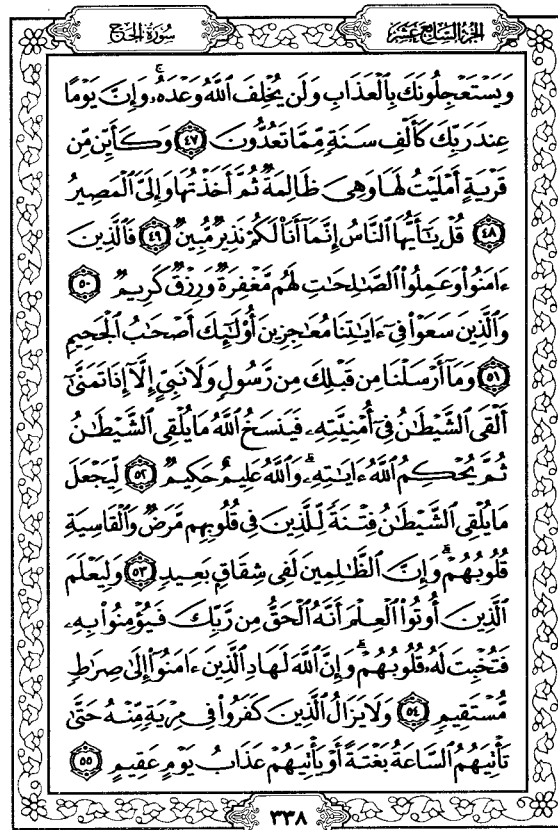 سُورَةُ الحَجِّ
الجُزْءُ السَّابِعَ عَشَرَ
وَيَسْتَعْجِلُونَكَ بِٱلْعَذَابِ وَلَن يُخْلِفَ ٱللَّهُ وَعْدَهُۥۚ وَإِنَّ يَوْمًا
عِندَ رَبِّكَ كَأَلْفِ سَنَةٍ مِّمَّا تَعُدُّونَ ٤٧ وَكَأَيِّن مِّن
قَرْيَةٍ أَمْلَيْتُ لَهَا وَهِىَ ظَالِمَةٌ ثُمَّ أَخَذْتُهَا وَإِلَىَّ ٱلْمَصِيرُ
٤٨ قُلْ يَٰٓأَيُّهَا ٱلنَّاسُ إِنَّمَآ أَنَا۠ لَكُمْ نَذِيرٌ مُّبِينٌ ٤٩ فَٱلَّذِينَ
ءَامَنُوا۟ وَعَمِلُوا۟ ٱلصَّٰلِحَٰتِ لَهُم مَّغْفِرَةٌ وَرِزْقٌ كَرِيمٌ ٥٠
وَٱلَّذِينَ سَعَوْا۟ فِىٓ ءَايَٰتِنَا مُعَٰجِزِينَ أُو۟لَٰٓئِكَ أَصْحَٰبُ ٱلْجَحِيمِ
٥١ وَمَآ أَرْسَلْنَا مِن قَبْلِكَ مِن رَّسُولٍ وَلَا نَبِىٍّ إِلَّآ إِذَا تَمَنَّىٰٓ
أَلْقَى ٱلشَّيْطَٰنُ فِىٓ أُمْنِيَّتِهِۦ فَيَنسَخُ ٱللَّهُ مَا يُلْقِى ٱلشَّيْطَٰنُ
ثُمَّ يُحْكِمُ ٱللَّهُ ءَايَٰتِهِۦۗ وَٱللَّهُ عَلِيمٌ حَكِيمٌ ٥٢ لِّيَجْعَلَ
مَا يُلْقِى ٱلشَّيْطَٰنُ فِتْنَةً لِّلَّذِينَ فِى قُلُوبِهِم مَّرَضٌ وَٱلْقَاسِيَةِ
قُلُوبُهُمْۗ وَإِنَّ ٱلظَّٰلِمِينَ لَفِى شِقَاقٍۭ بَعِيدٍ ٥٣ وَلِيَعْلَمَ
ٱلَّذِينَ أُوتُوا۟ ٱلْعِلْمَ أَنَّهُ ٱلْحَقُّ مِن رَّبِّكَ فَيُؤْمِنُوا۟ بِهِۦ
فَتُخْبِتَ لَهُۥ قُلُوبُهُمْۗ وَإِنَّ ٱللَّهَ لَهَادِ ٱلَّذِينَ ءَامَنُوٓا۟ إِلَىٰ صِرَٰطٍ
مُّسْتَقِيمٍ ٥٤ وَلَا يَزَالُ ٱلَّذِينَ كَفَرُوا۟ فِى مِرْيَةٍ مِّنْهُ حَتَّىٰ
تَأْتِيَهُمُ ٱلسَّاعَةُ بَغْتَةً أَوْ يَأْتِيَهُمْ عَذَابُ يَوْمٍ عَقِيمٍ ٥٥
٣٣٨